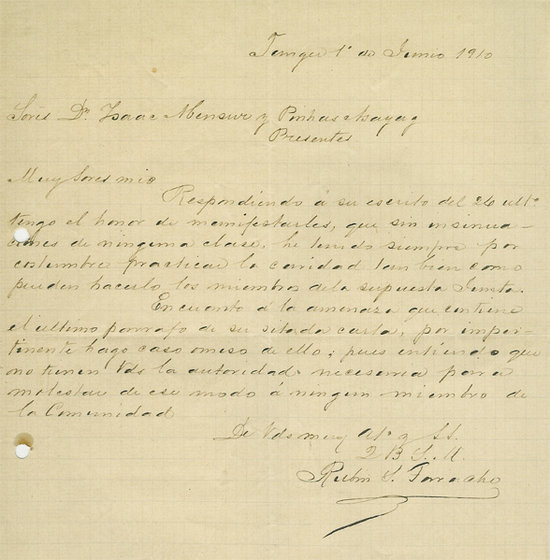 Tanger 1º de Junio 1910
Sores Dn Isaac Mensur y Pinhas Azayag
Presentes
Muy Sores mio
Respondiendo á su escrito del 26 ultº
tengo el honor de manifestarles, que sin insinua-
ciones de ninguna clase, he tenido siempre por
costumbre practicar la caridad tan bien como
pueden hacerlo los miembros de la supuesta Junta.
En cuanto á la amenaza que contiene
el ultimo parrafo de su sitada carta, por imper-
tinente hago caso omiso de ello; pues entiendo que
no tienen Vds la autoridad necesaria para
molestar de ese modo á ningun miembro de
la Comunidad
De Vds muy Atº y SS.
Q B S. M.
Rubin S.